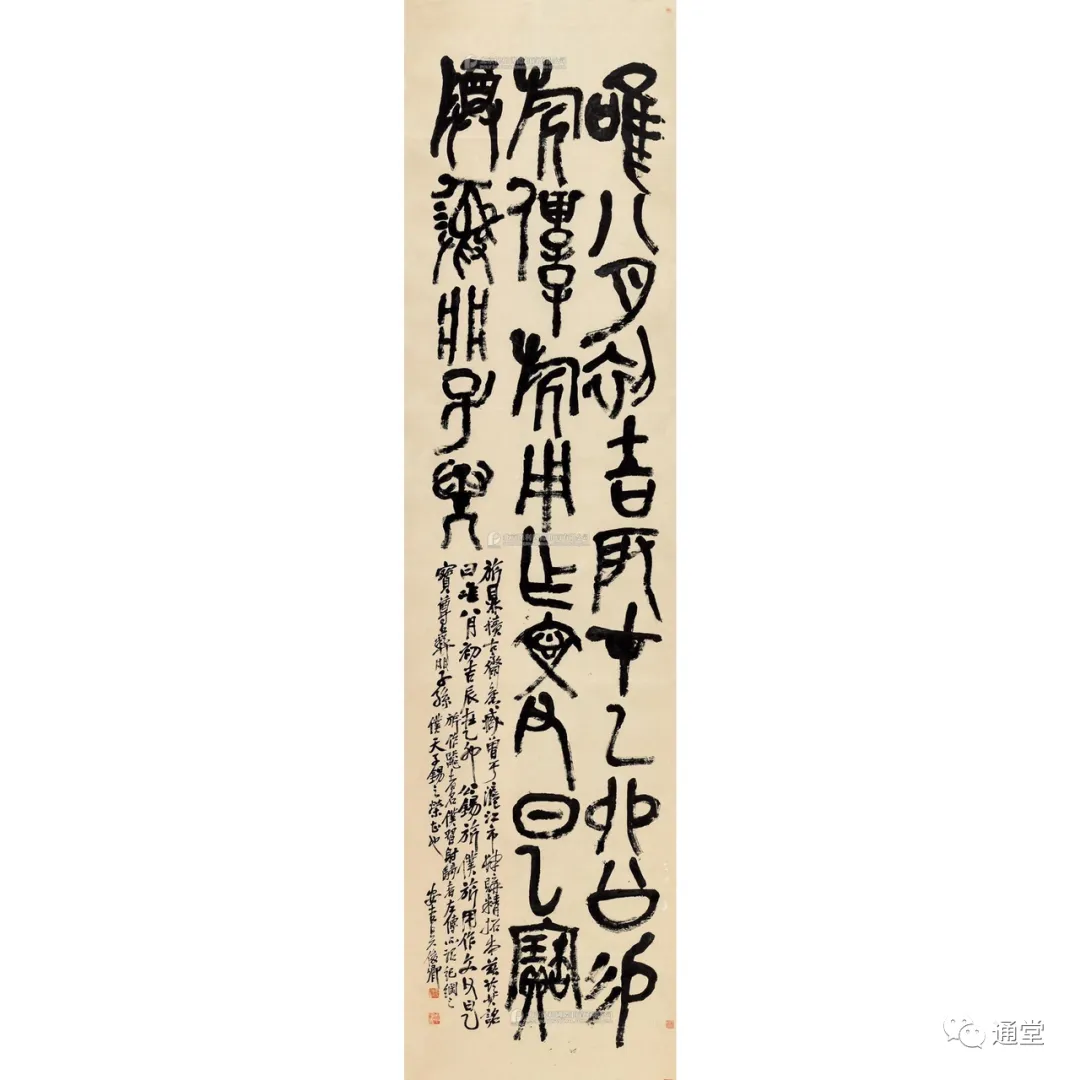 唯八月初吉辰才乙卯公易
旂僕旂用乍文父日乙寶
尊彝子孫
旂鼎積古齋舊藏曾于滬江市肆購精拓本
曰唯八月初吉辰在乙卯公錫旂僕旂用作文父日乙
寶尊彝子孫
僕天子錫之榮志也
安吉吳俊卿
通堂